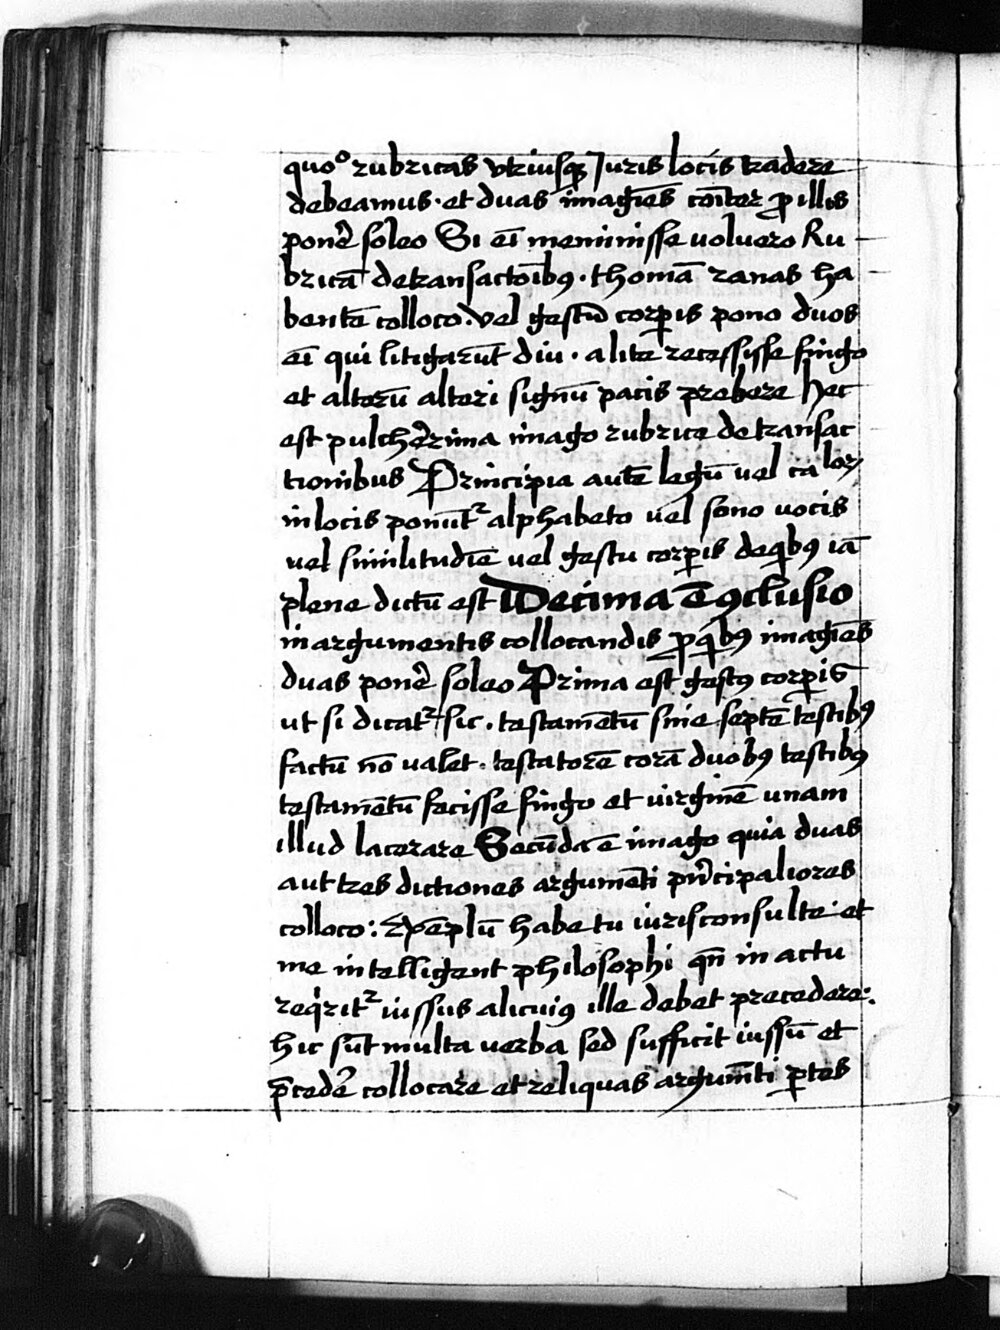 quoº rubricas vtriusqȝ Iuris locis tradere
debeamus · et duas imagīes cōīter ꝓ illis
ponē soleo Si eī meminisse uoluero Ru
bricā de transactoībꝯ · thomā ranas ha
bentē colloco · vel gestū corꝑis pono duos
eī qui litigarūt diu · a lite recessisse fingo
et alterū alteri signū pacis prebere hec
est pulcherrima imago rubrice de transac
tionibus Principia autē legū uel ca lorꝝ
in locis ponūtᷣ alphabeto uel sono uocis
uel similitudīe uel gestu corꝑis de qͥbꝯ iā
plene dictū est Decima ē ꝯclusio
in argumentis collocandis ꝓ qͥbꝯ imagīes
duas ponē soleo Prima est gestꝯ corꝑis
ut si dicatᷣ sic · testamētū sine septē testibꝯ
factū nō ualet · testatorē corā duobꝯ testibꝯ
testamētū fecisse fingo et uirginē unam
illud lacerare Secūda ē imago quia duas
aut tres dictiones argumēti pͥncipaliores
colloco : Exēplū habe tu iurisconsulte · et
me intelligent philosophi qn̄ in actu
reqͥritᷣ iussus alicuiꝯ ille debet precedere :
hic sūt multa uerba sed sufficit iussū et
p̄cedē collocare et reliquas argumēti ꝑtes